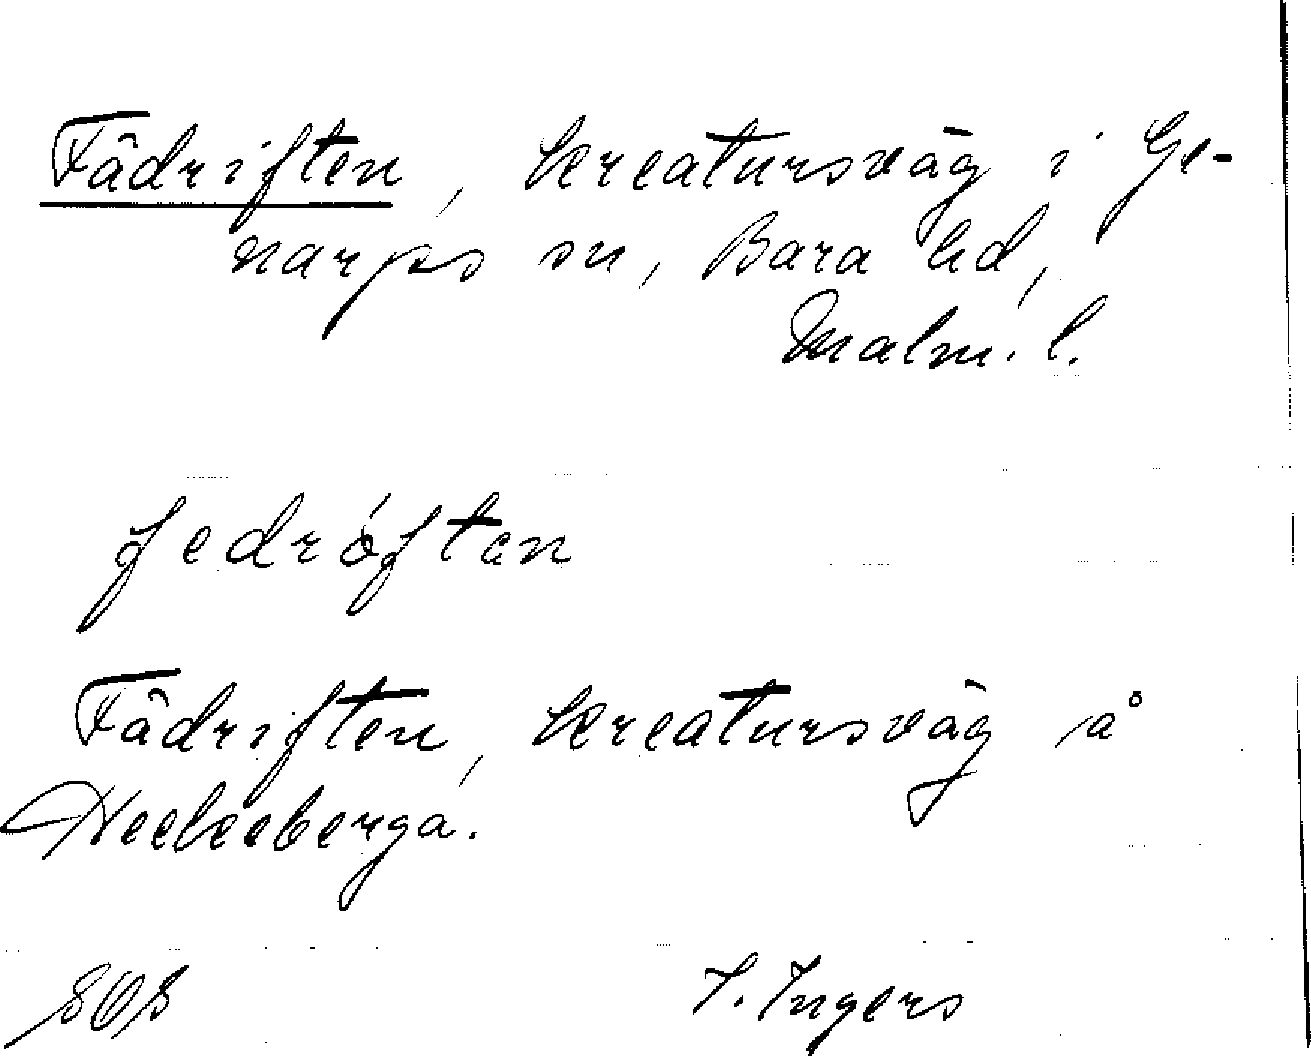 Fädriften, kreatursväg i Ge-
narps sn, Bara hd,
Malm. l.
fedróften
Fädriften, kreatursväg å
Heckeberga.
I. Ingers